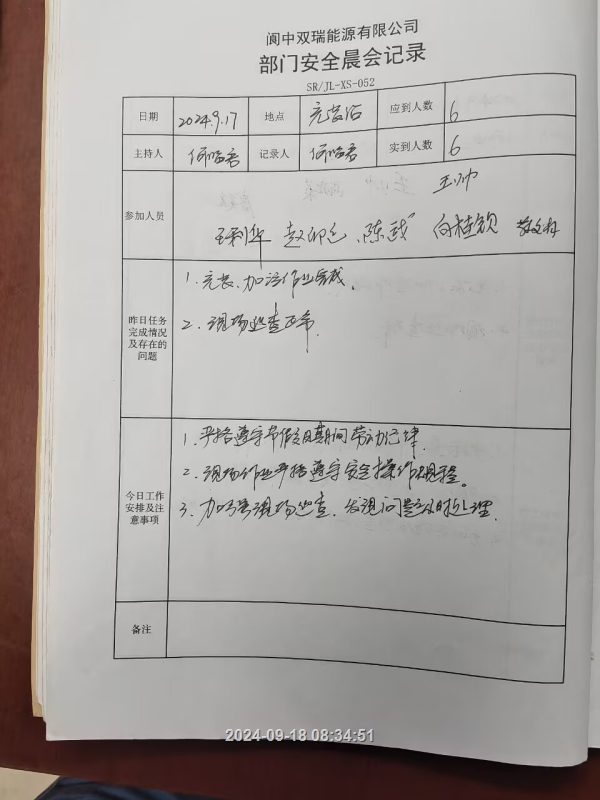 阆中双瑞能源有限公司
部门安全晨会记录
SR/JL-XS-052
日期 2024.9.17 地点 充装站 应到人数 6
主持人 何 记录人 何 实到人数 6
王帅
参加人员 王利华 赵 陈 向桂
昨日任务
完成情况
及存在的
问题
1. 充装、加注作业完成。
2. 现场巡查正常
今日工作
安排及注
意事项
1. 严格遵守节假日期间劳动纪律.
2. 现场作业严格遵守安全操作规程。
3. 加强现场巡查, 发现问题及时处理.
备注
2024-09-18 08:34:51